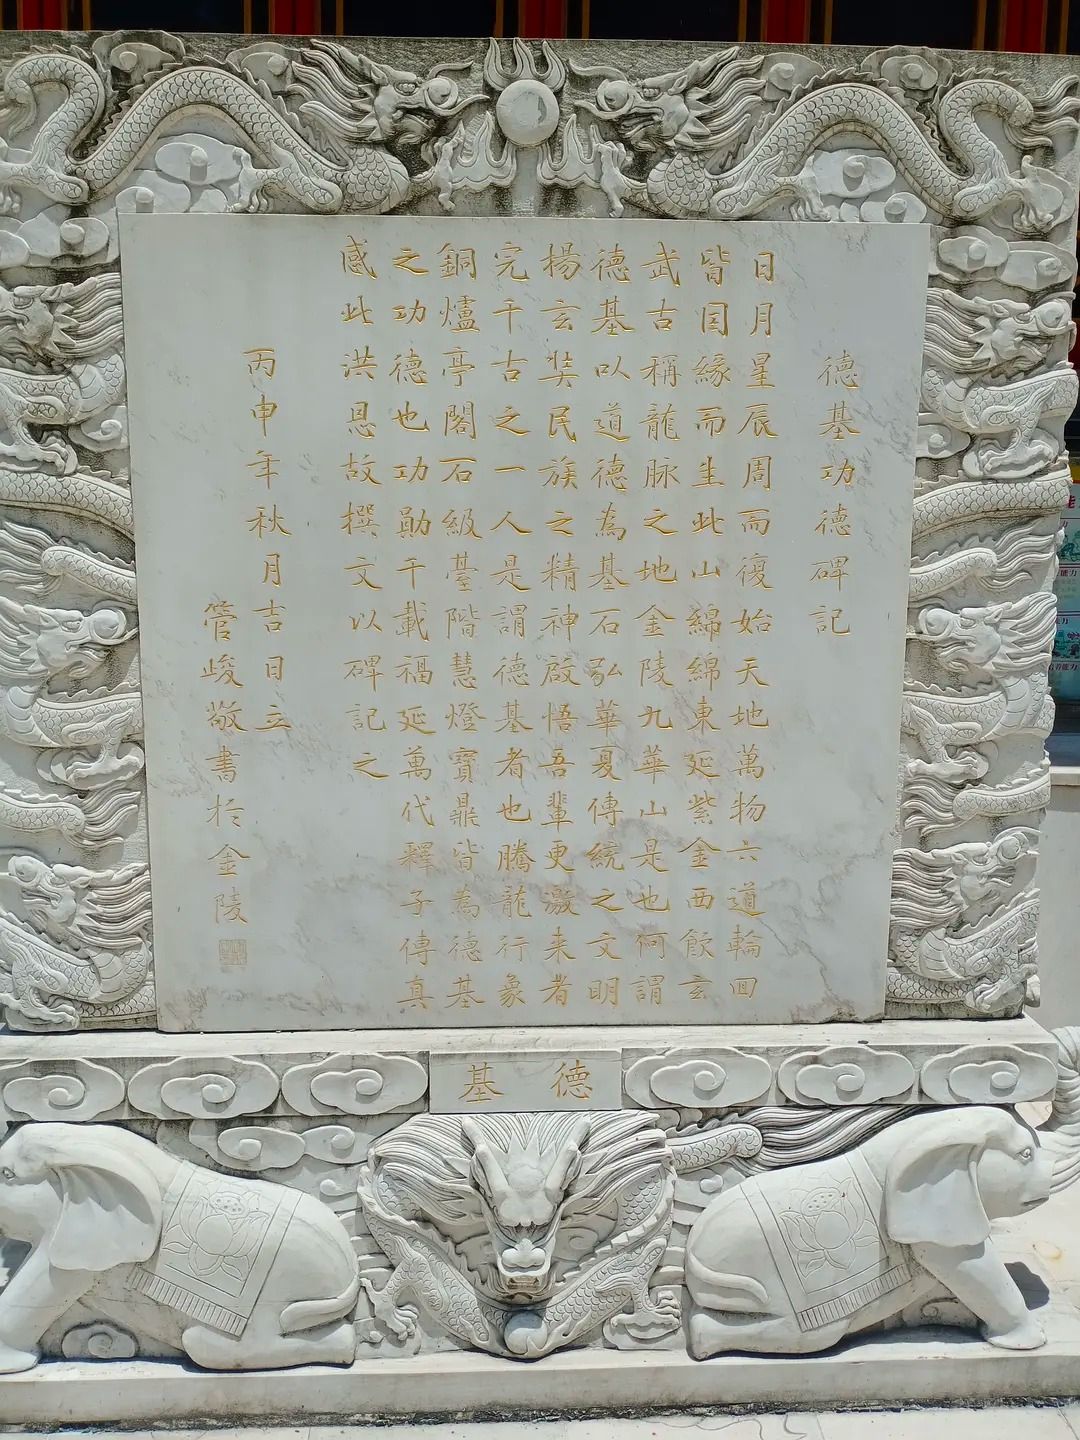 德基功德碑記
日月星辰周而復始天地萬物六道輪回
皆因緣而生此山綿綿東延紫金西飲玄
武古稱龍脉之地金陵九華山是也何謂
德基以道德為基石弘華夏傳統之文明
揚玄奘民族之精神啟悟吾輩更激来者
完千古之一人是謂德基者也騰龍行象
銅爐亭閣石級臺階慧燈寶鼎皆為德基
之功德也功勛千載福延萬代釋子傳真
感此洪恩故撰文以碑記之
丙申年秋月吉日立
管峻敬書於金陵
德基